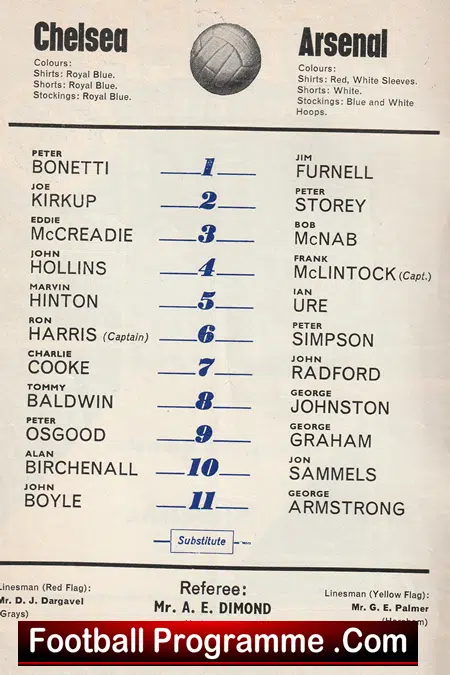 Chelsea
Colours:
Shirts: Royal Blue.
Shorts: Royal Blue.
Stockings: Royal Blue.
Arsenal
Colours:
Shirts: Red, White Sleeves.
Shorts: White.
Stockings: Blue and White
Hoops.
PETER
BONETTI
1
JIM
FURNELL
JOE
KIRKUP
2
PETER
STOREY
EDDIE
McCREADIE
3
BOB
McNAB
JOHN
HOLLINS
4
FRANK
McLINTOCK (Capt.)
MARVIN
HINTON
5
IAN
URE
RON
HARRIS (Captain)
6
PETER
SIMPSON
CHARLIE
COOKE
7
JOHN
RADFORD
TOMMY
BALDWIN
8
GEORGE
JOHNSTON
PETER
OSGOOD
9
GEORGE
GRAHAM
ALAN
BIRCHENALL
10
JON
SAMMELS
JOHN
BOYLE
11
GEORGE
ARMSTRONG
Substitute
Linesman (Red Flag):
Mr. D. J. Dargavel
(Grays)
Referee:
Mr. A. E. DIMOND
Linesman (Yellow Flag):
Mr. G. E. Palmer
Football Programme .Com